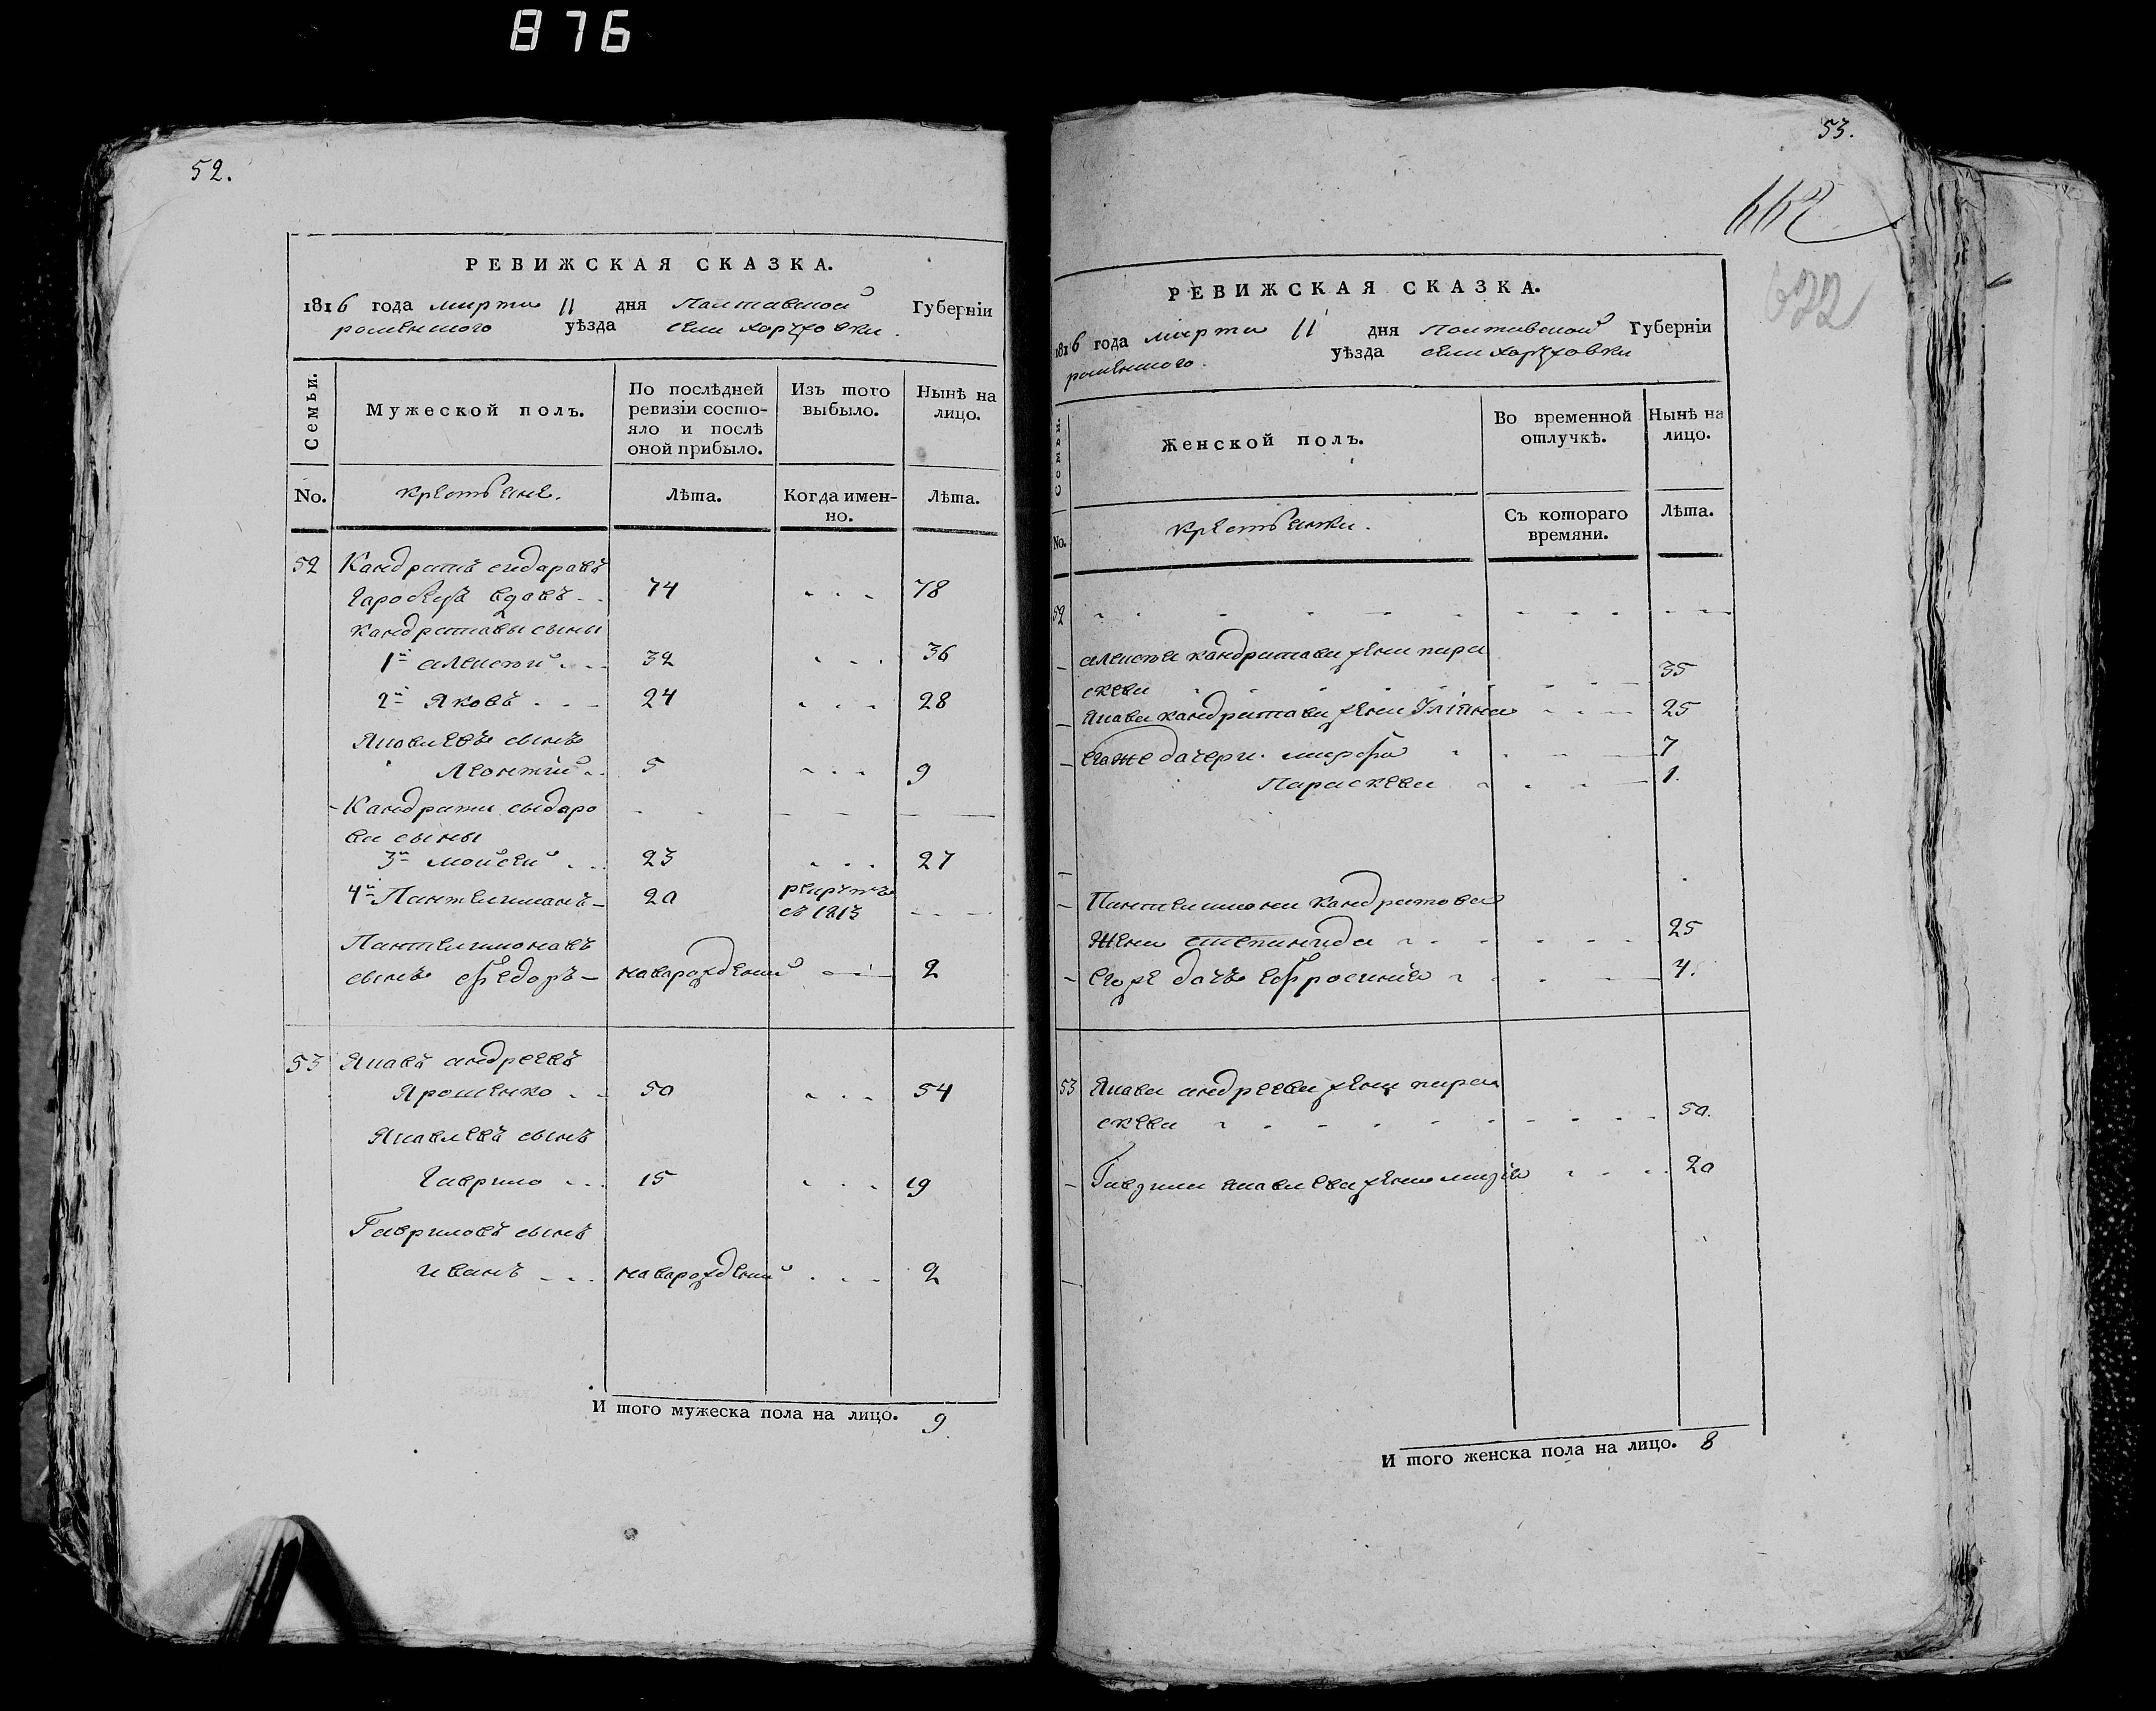 876
52.
РЕВИЖСКАЯ СКАЗКА.
1816 года марта 11 дня Полтавской Губерніи
роменского уѣзда села
Семьи.
Мужеской полъ.
По послѣдней ревизіи состо-
яло и послѣ оной прибыло.
Изъ того выбыло.
Нынѣ на лицо.
No.
крестьяне.
Лѣта.
Когда имен-
но.
Лѣта.
52 Кандратъ сидаровъ
вдовъ 74 78
кандратавы сыны
1й алексѣй 32 36
2й Яковъ 24 28
Яковлевъ сынъ
Леонтий 5 9
Кандрата сыдаро
ва сыны
3й мойсей 23 27
4й Пантелимонъ 20 рекрутъ
съ 1813
Пантелимоновъ
сынъ федоръ новарождений 2
53 Яковъ андреевъ
Ярошенко 50 54
Яковлевъ сынъ
Гаврило 15 19
Гавриловъ сынъ
иванъ новарождений 2
И того мужеска пола на лицо. 9
53.
622
РЕВИЖСКАЯ СКАЗКА.
1816 года марта 11 дня Полтавской Губерніи
роменского уѣзда села
Семьи.
Женской полъ.
Во временной отлучкѣ.
Нынѣ на лицо.
No.
крестьянки.
Съ котораго времяни.
Лѣта.
52
алексѣя кандратава жена пара
скева 35
Якова кандратава жена Уліяна 25
егоже дочери марфа 7
Параскева 1.
Пантелимона Кандратова
жена степанида 25
егоже дочь ефросиния 4.
53 Якова андреева жена пара
скева 50.
Гаврила яковлева жена 20
И того женска пола на лицо. 8